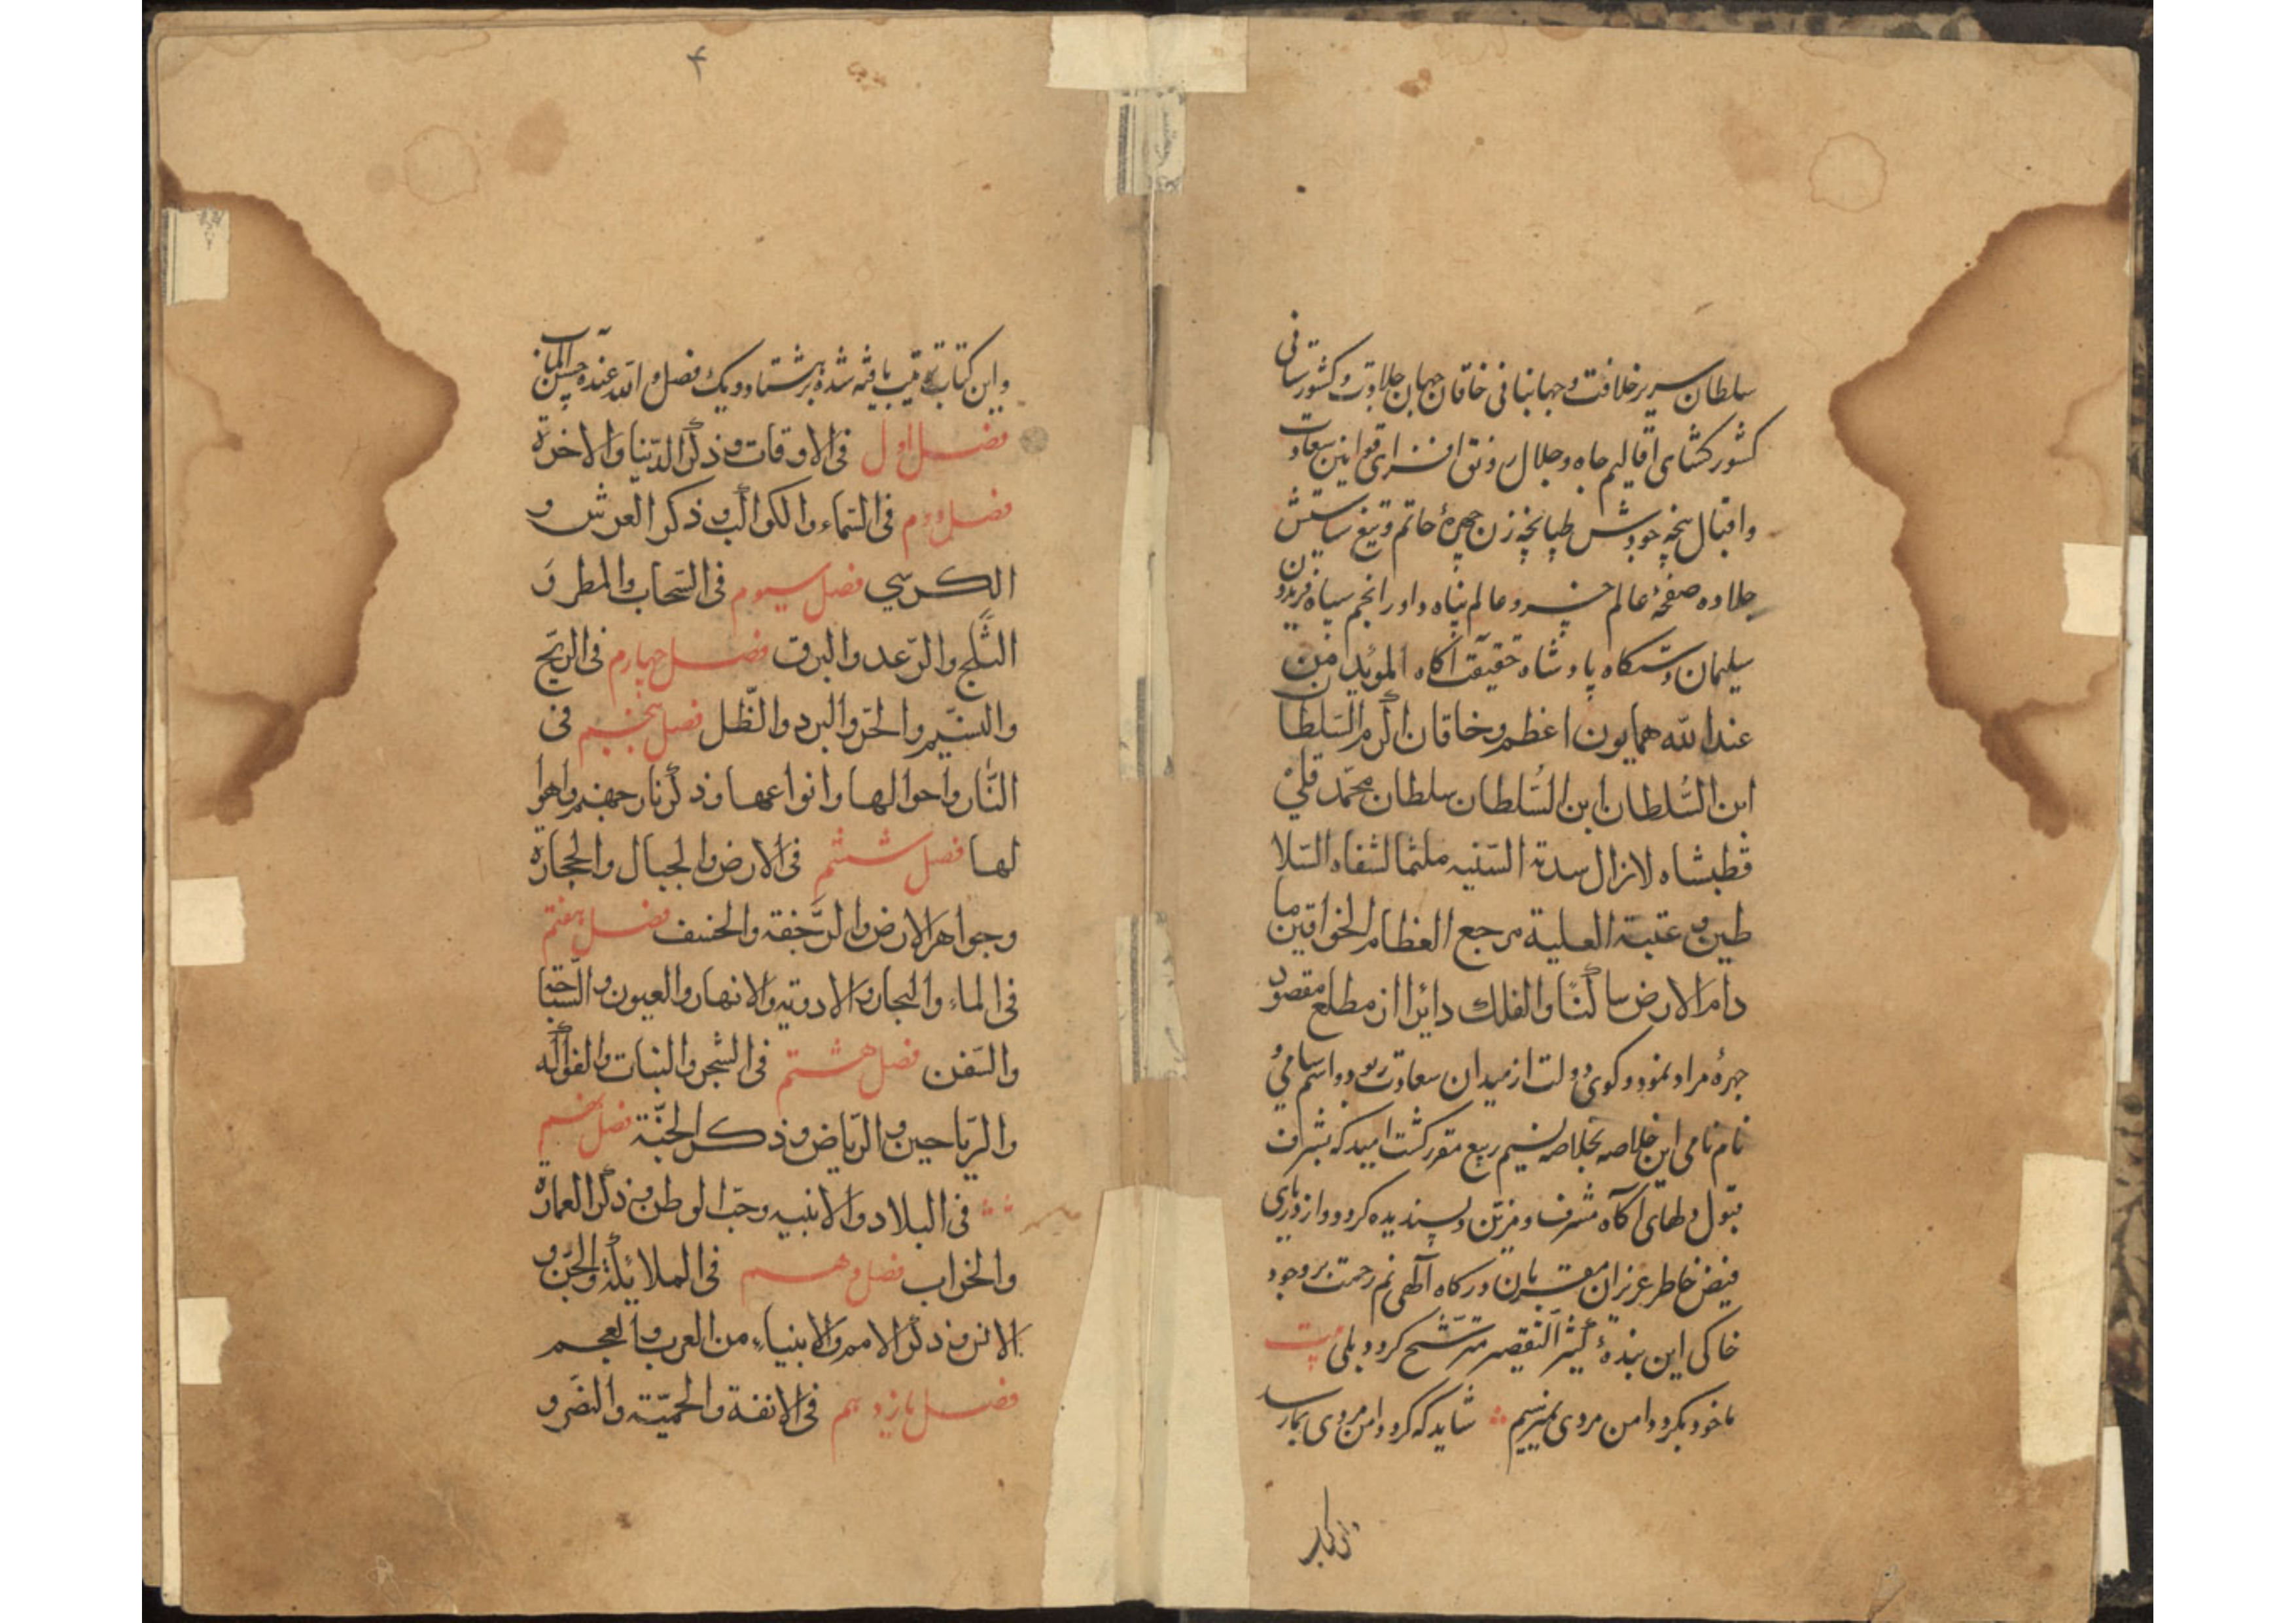 سلطان سریر خلافت و جهانبانی خاقان جهان جلادت و کشورستانی
کشور کشای اقالیم جاه و جلال رونق افزای قوانین سعادت
و اقبال پنجه جودش طپانچه زن چهرهٔ حاتم و تیغ سیاستش
جلا ده صفحهٔ عالم خسرو عالم پناه داور انجم سپاه فریدون
سلیمان دستکاه پادشاه حقیقت آکاه المؤید من
عند الله همایون اعظم و خاقان اکرم السلطان
ابن السلطان ابن السلطان سلطان محمد قلی
قطبشاه لازال سدته السنیه ملثما لشفاه السلا
طین و عتبته العلیة مرجع العظام الخواقین ما
دام الارض ساکنا والفلک دایرا از مطلع مقصود
چهرهٔ مراد نمود و کوی دولت از میدان سعادت ربود و اسم سامی و
نام نامی این خلاصه بخلاصه نسیم ربیع مقرر کشت امید که بشرف
قبول دلهای آکاه مشرف و مزین و پسندیده کردد و از دریای
فیض خاطر عزیزان مقربان درکاه آلهی نم رحمت بر وجود
خاکی این بندهٔ کثیر التقصیر مترشح کردد بلی بیت
ما خود بکرد دامن مردی نمیرسیم شاید که کرد دامن مردی بما رسد
۴
و این کتاب ترتیب یافته شده بر هشتاد و یک فصل و الله عنده حسن المآب
فصل اول فی الاوقات و ذکر الدنیا والاخرة
فصل دوم فی السماء والکواکب و ذکر العرش و
الکرسی فصل سیوم فی السحاب والمطر و
الثلج والرعد والبرق فصل چهارم فی الریح
والنسیم والحر والبرد والظل فصل پنجم فی
النار واحوالها وانواعها و ذکر نار جهنم واهوا
لها فصل ششم فی الارض والجبال والحجارة
وجواهر الارض والرجفة والخسف فصل هفتم
فی الماء والبحار والاودیه والانهار والعیون والسباحة
والسفن فصل هشتم فی الشجر والنبات والفواکه
والریاحین والریاض و ذکر الجنة فصل نهم
فی البلاد والابنیه وحب الوطن و ذکر العمارة
والخراب فصل دهم فی الملائکة والجن و
الانس و ذکر الامم والانبیاء من العرب والعجم
فصل یازدهم فی الانفة والحمیة والنصر و